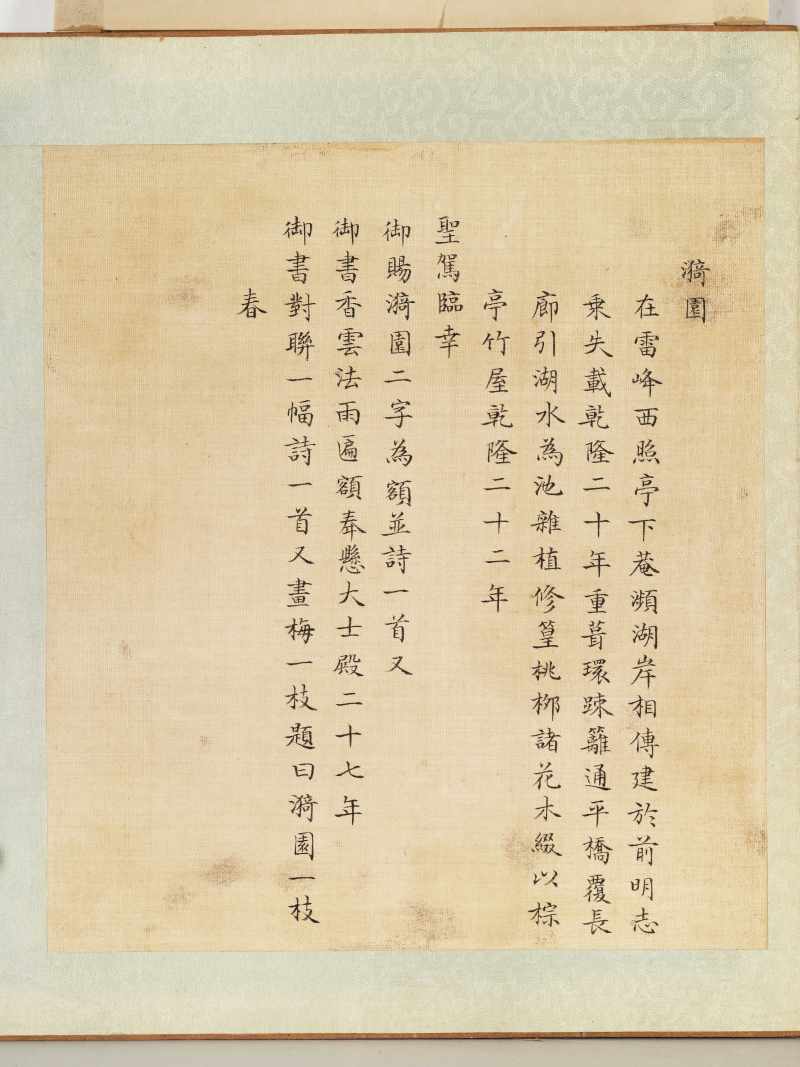 漪園
在雷峰西照亭下菴瀕湖岸相傳建於前明志
乗失載乾隆二十年重葺環踈籬通平橋覆長
廊引湖水為池雜植修篁桃柳諸花木綴以棕
亭竹屋乾隆二十二年
聖駕臨幸
御賜漪園二字為額並詩一首又
御書香雲法雨遍額奉懸大士殿二十七年
御書對聯一幅詩一首又畫梅一枝題曰漪園一枝
春